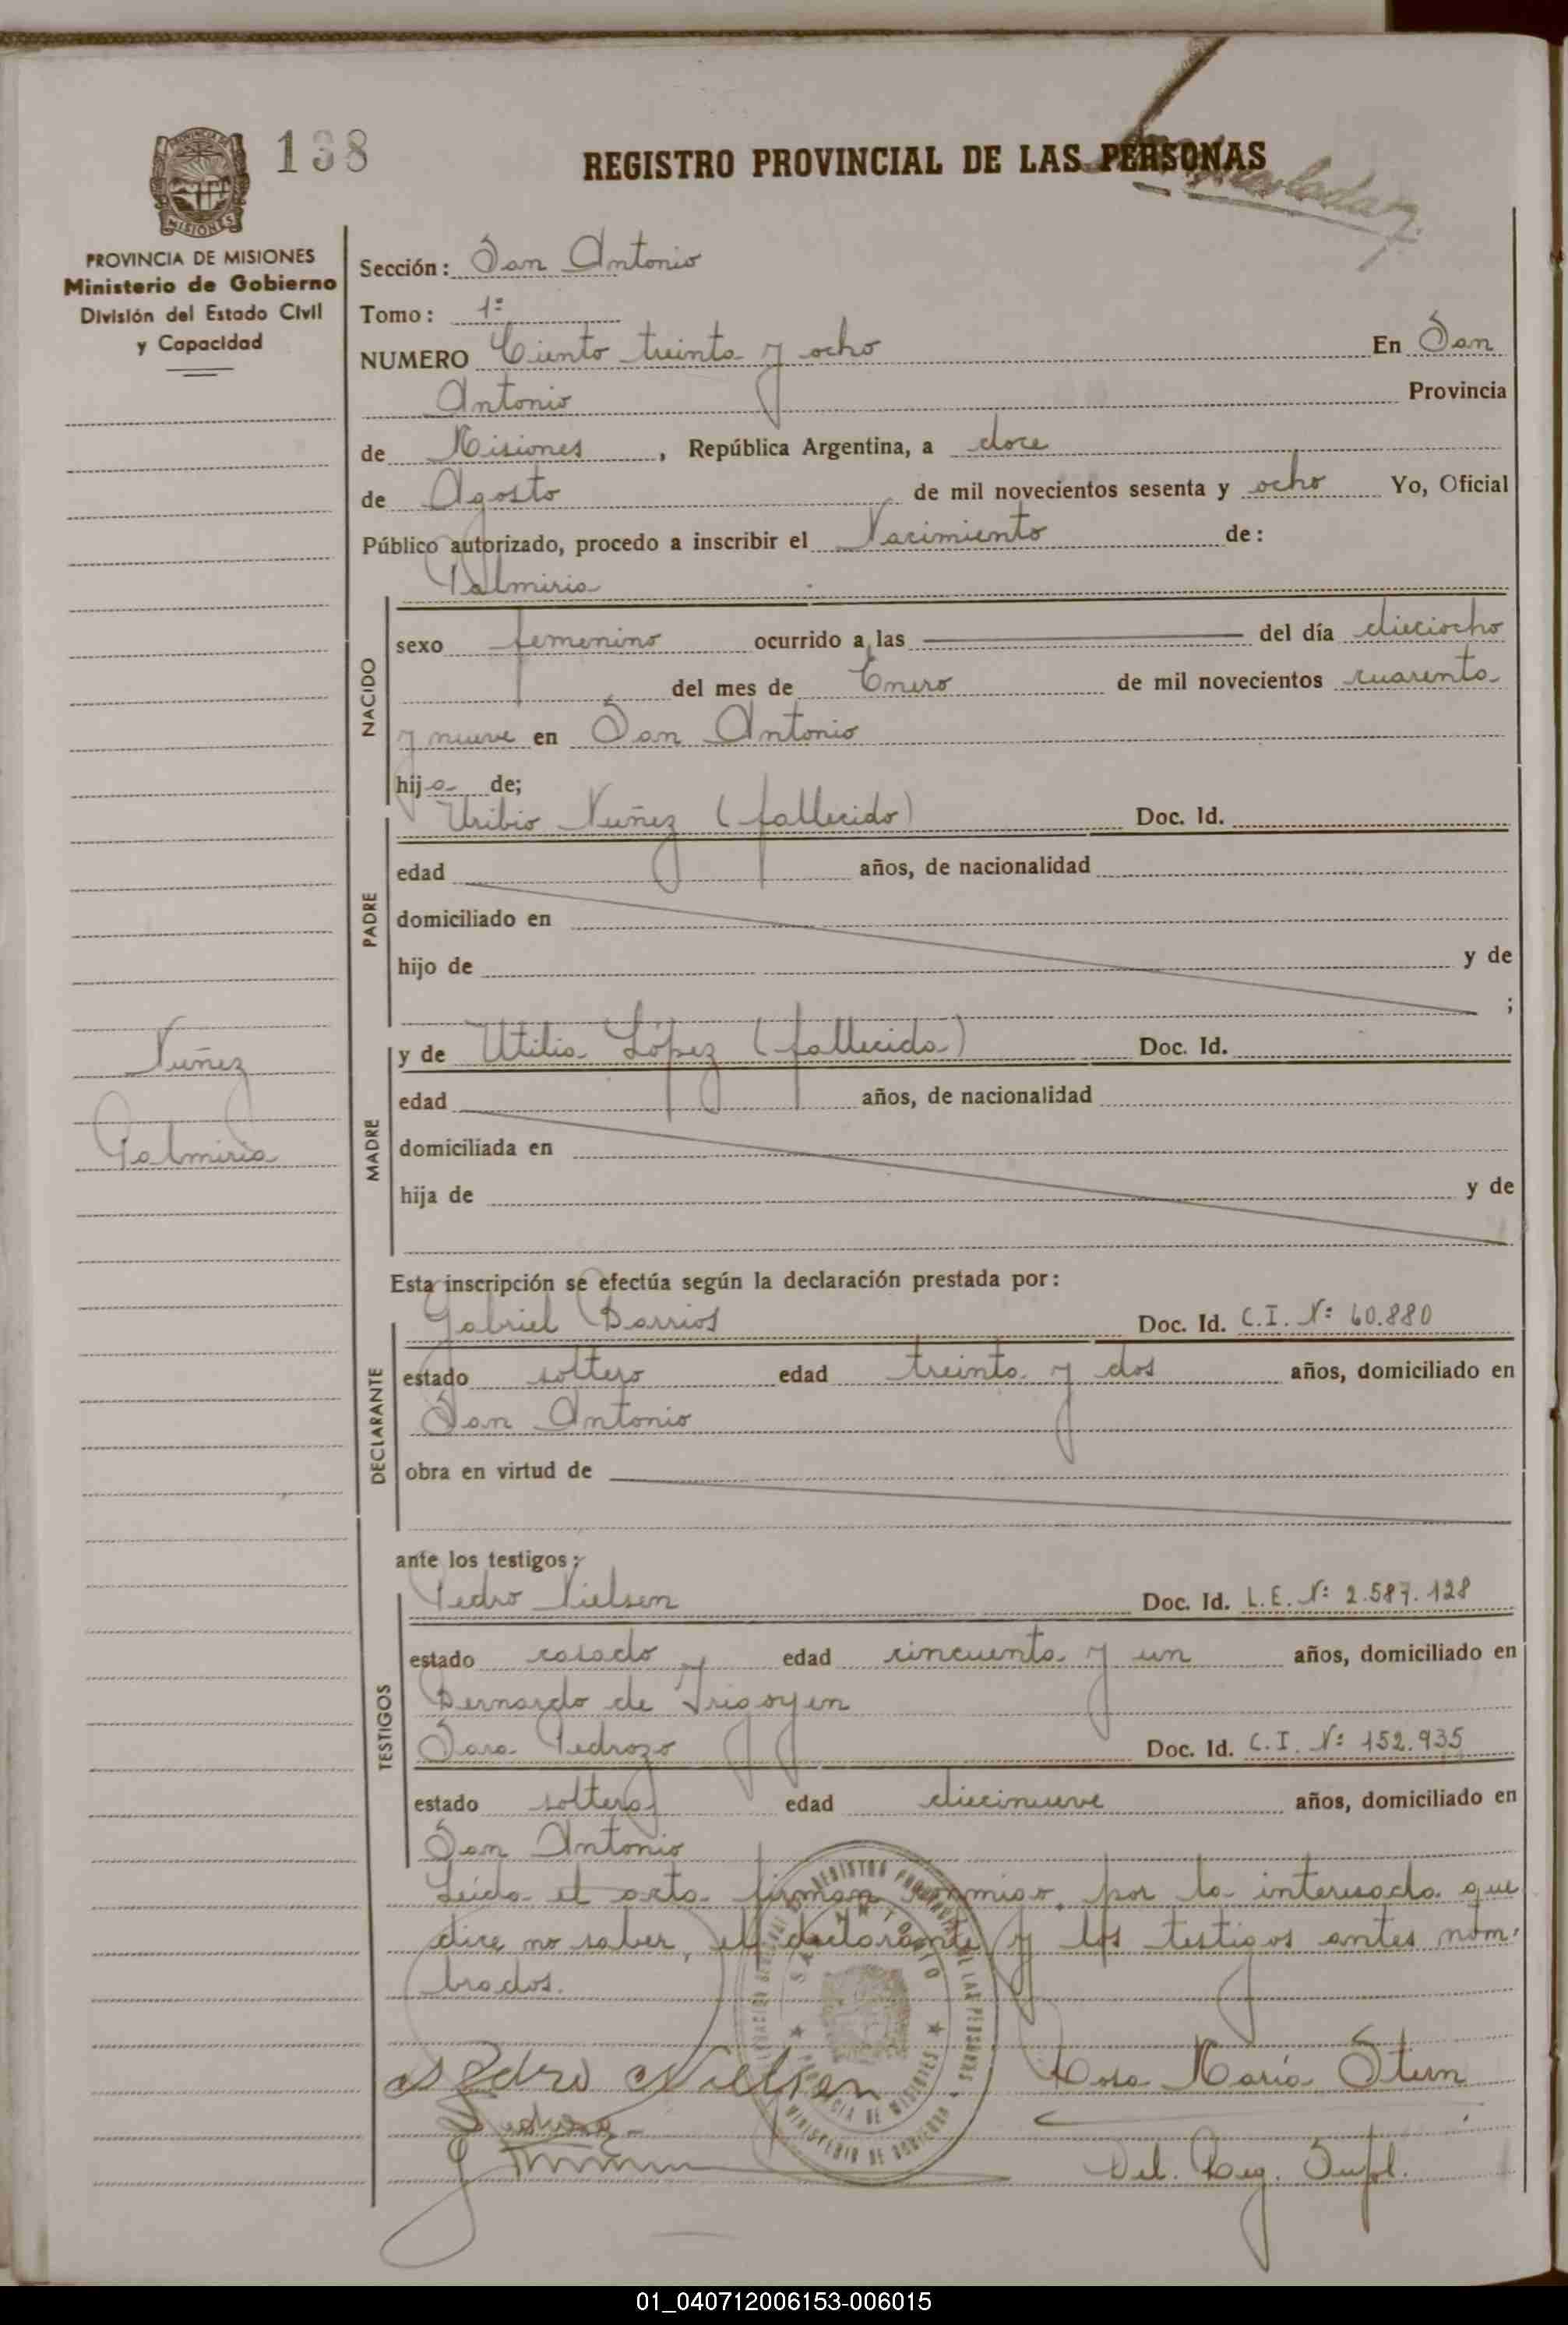 138
REGISTRO PROVINCIAL DE LAS PERSONAS
PROVINCIA DE MISIONES
Ministerio de Gobierno
División del Estado Civil
y Capacidad
Sección: San Antonio
Tomo: 1º
NUMERO Ciento treinta y ocho En San
Antonio Provincia
de Misiones, República Argentina, a doce
de Agosto de mil novecientos sesenta y ocho Yo, Oficial
Público autorizado, procedo a inscribir el Nacimiento de:
NACIDO
Palmiria
sexo femenino ocurrido a las del día dieciocho
del mes de Enero de mil novecientos cuarenta
y nueve en San Antonio
hija de;
PADRE
Uribio Nuñez (fallecido) Doc. Id.
edad años, de nacionalidad
domiciliado en
hijo de y de
;
Nuñez
Palmiria
MADRE
y de Utilia López (fallecida) Doc. Id.
edad años, de nacionalidad
domiciliada en
hija de y de
Esta inscripción se efectúa según la declaración prestada por:
DECLARANTE
Gabriel Barrios Doc. Id. C.I. Nº 60.880
estado soltero edad treinta y dos años, domiciliado en
San Antonio
obra en virtud de
ante los testigos;
TESTIGOS
Pedro Nielsen Doc. Id. L.E. Nº 2.587.128
estado casado edad cincuenta y un años, domiciliado en
Bernardo de Irigoyen
Sara Pedrozo Doc. Id. C.I. Nº 152.935
estado soltera edad diecinueve años, domiciliado en
San Antonio
Leída el acta firman conmigo, por la interesada que
dice no saber, el declarante y los testigos antes nom-
brados.
REGISTRO PROVINCIAL DE LAS PERSONAS
SAN ANTONIO
PROVINCIA DE MISIONES
MINISTERIO DE GOBIERNO
Pedro Nielsen
Rosa María Stern
Del. Reg. Supl.
01_040712006153-006015